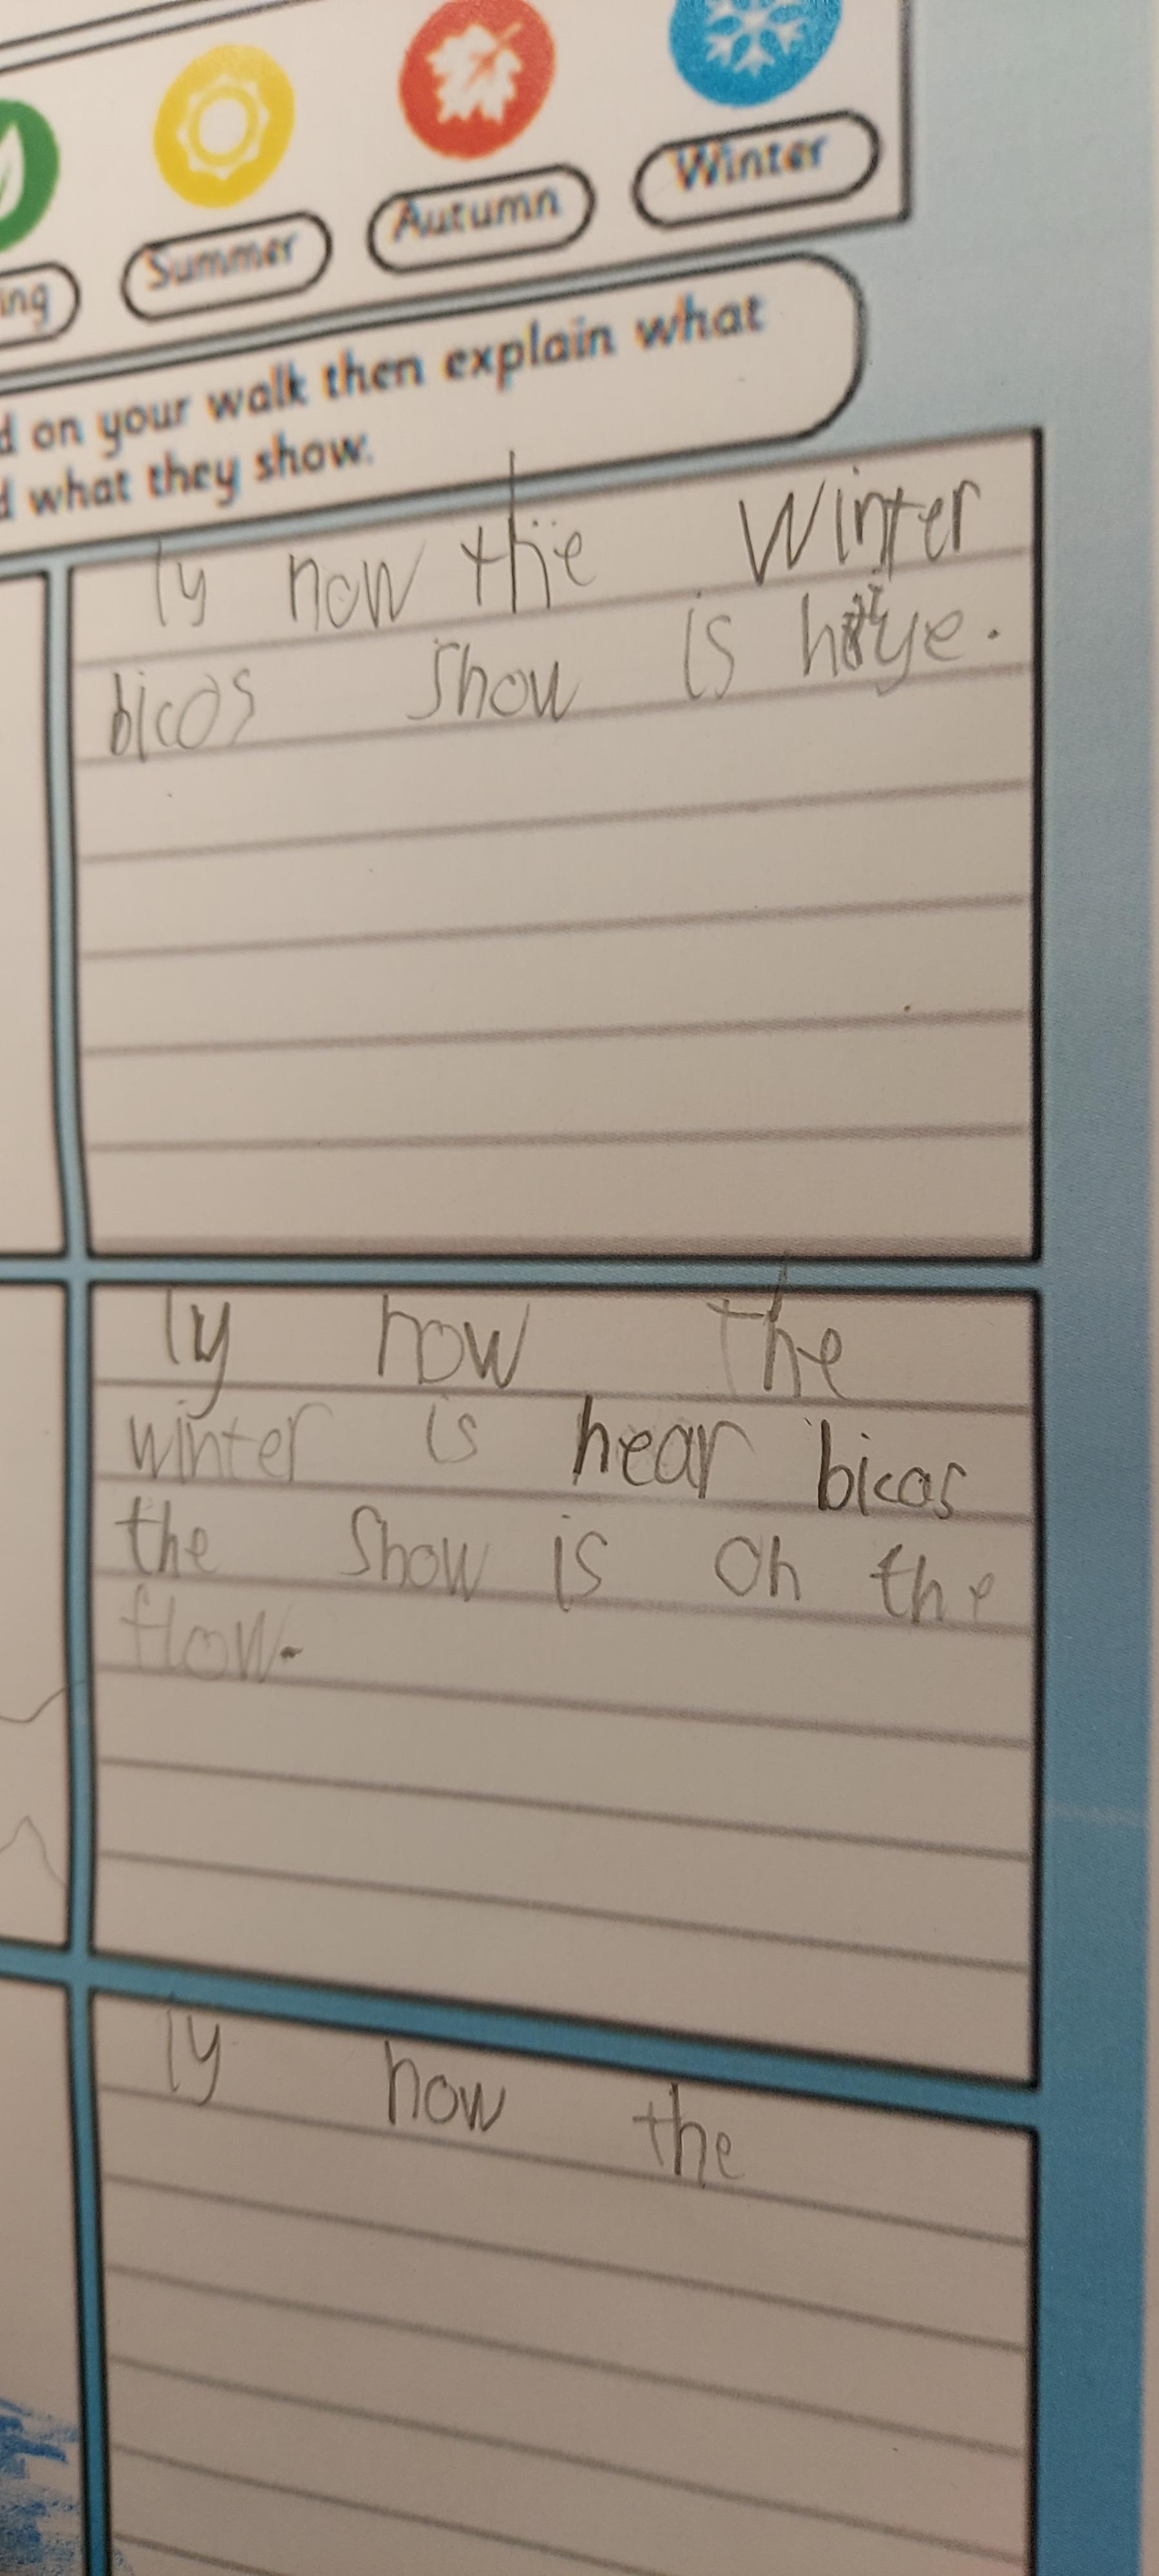 Summer
Autumn
Winter
ing
d on your walk then explain what
d what they show.
Iy now the Winter
bicos Snow is
Iy now the
winter is hear bicos
the Snow is on the
flow.
Iy now the